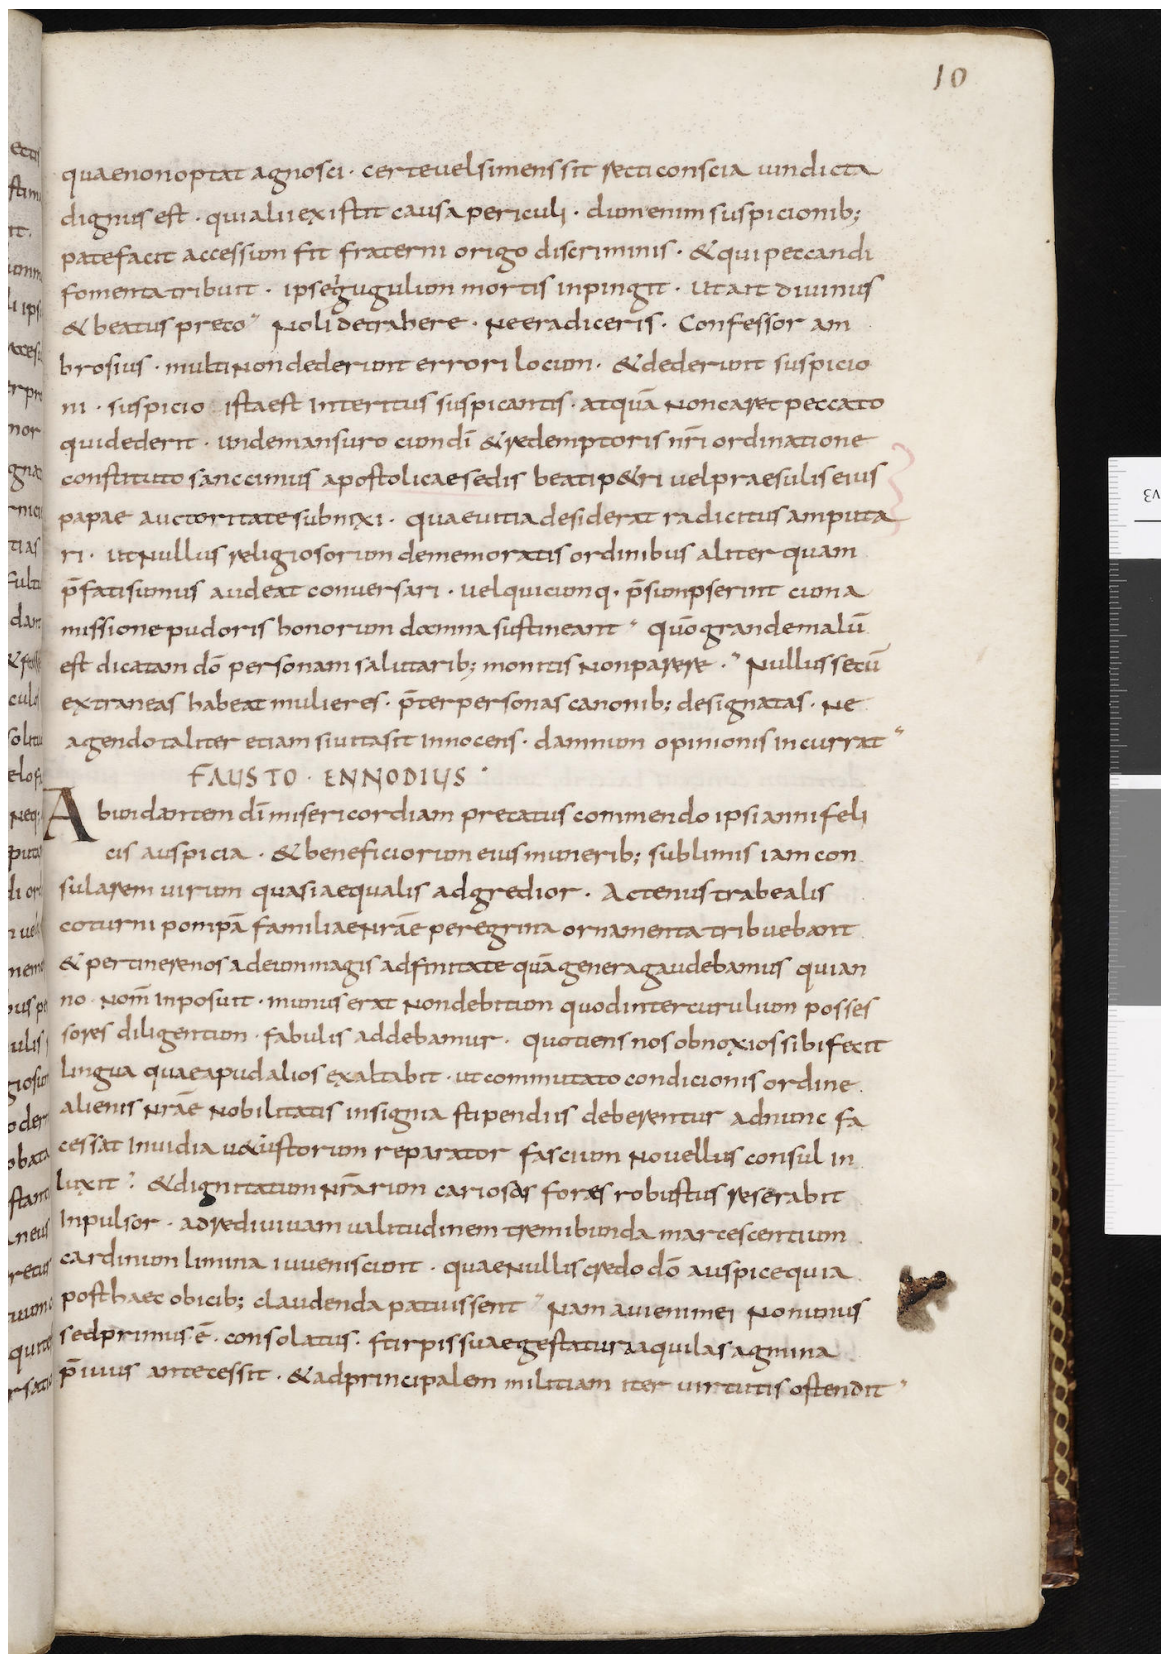 10
quae non optat agnosci · certe uel si mens sit recti conscia uindicta
dignus est · qui alii existit causa periculi · dum enim suspicionib;
patefacit accessum fit fraterni origo discriminis · & qui peccandi
fomenta tribuit · ipse gugulum mortis inpingit · ut ait diuinus
& beatus preco Noli detrahere · Ne eradiceris · Confessor am
brosius · multi Non dederunt errori locum · & dederunt suspicio
ni · suspicio ista est Interitus suspicantis · atquā Non caret peccato
qui dederit · unde mansuro cum dī & redemptoris nr̄i ordinatione
constituto sanccimus apostolicae sedis beati p&ri uel praesulis eius
papae auctoritate subnixi · quae uitia desiderat radicitus amputa
ri · ut Nullus religiosorum de memoratis ordinibus aliter quam
p̄fati sumus audeat conuersari · uel quicumq · p̄sumpserint cum a
missione pudoris honorum damna sustineant quō grande malū
est dicatam dō personam salutarib; monitis Non parere · Nullus secū
extraneas habeat mulieres · p̄ter personas canonib; designatas · Ne
agendo taliter etiam si uita sit Innocens · damnum opinionis incurrat
FAUSTO · ENNODIUS
Abundantem dī misericordiam precatus commendo ipsi anni feli
cis auspicia · & beneficiorum eius munerib; sublimis iam con
sularem uirum quasi aequalis adgredior · Actenus trabealis
coturni pompā familiae Nrāe peregrina ornamenta tribuebant
& pertinere nos ad eum magis adfinitate quā genera gaudebamus qui an
no · Nom̄ Inposuit · munus erat Non debitum quod inter curulium posses
sores diligentum · fabulis addebamur · quotiens nos obnoxios sibi fecit
lingua quae apud alios exaltabit · ut commutato condicionis ordine
alienis Nrāe Nobilitatis insignia stipendiis deberentur ad nunc fa
cessat Inuidia u&ustorum reparator fascium Nouellus consul in
luxit & dignitatum Nr̄arum cariosas fores robustus reserabit
Inpulsor · ad rediuiuam ualitudinem tremibunda marcescentium
cardinum limina iuueniscunt · quae Nullis credo dō auspice quia
posthaec obicib; claudenda patuissent Nam auieni mei No n unus
sed primus ē · consolatus · stirpis suae gestatura aquilas agmina
p̄uius antecessit · & ad principalem militiam iter uirtutis ostendit